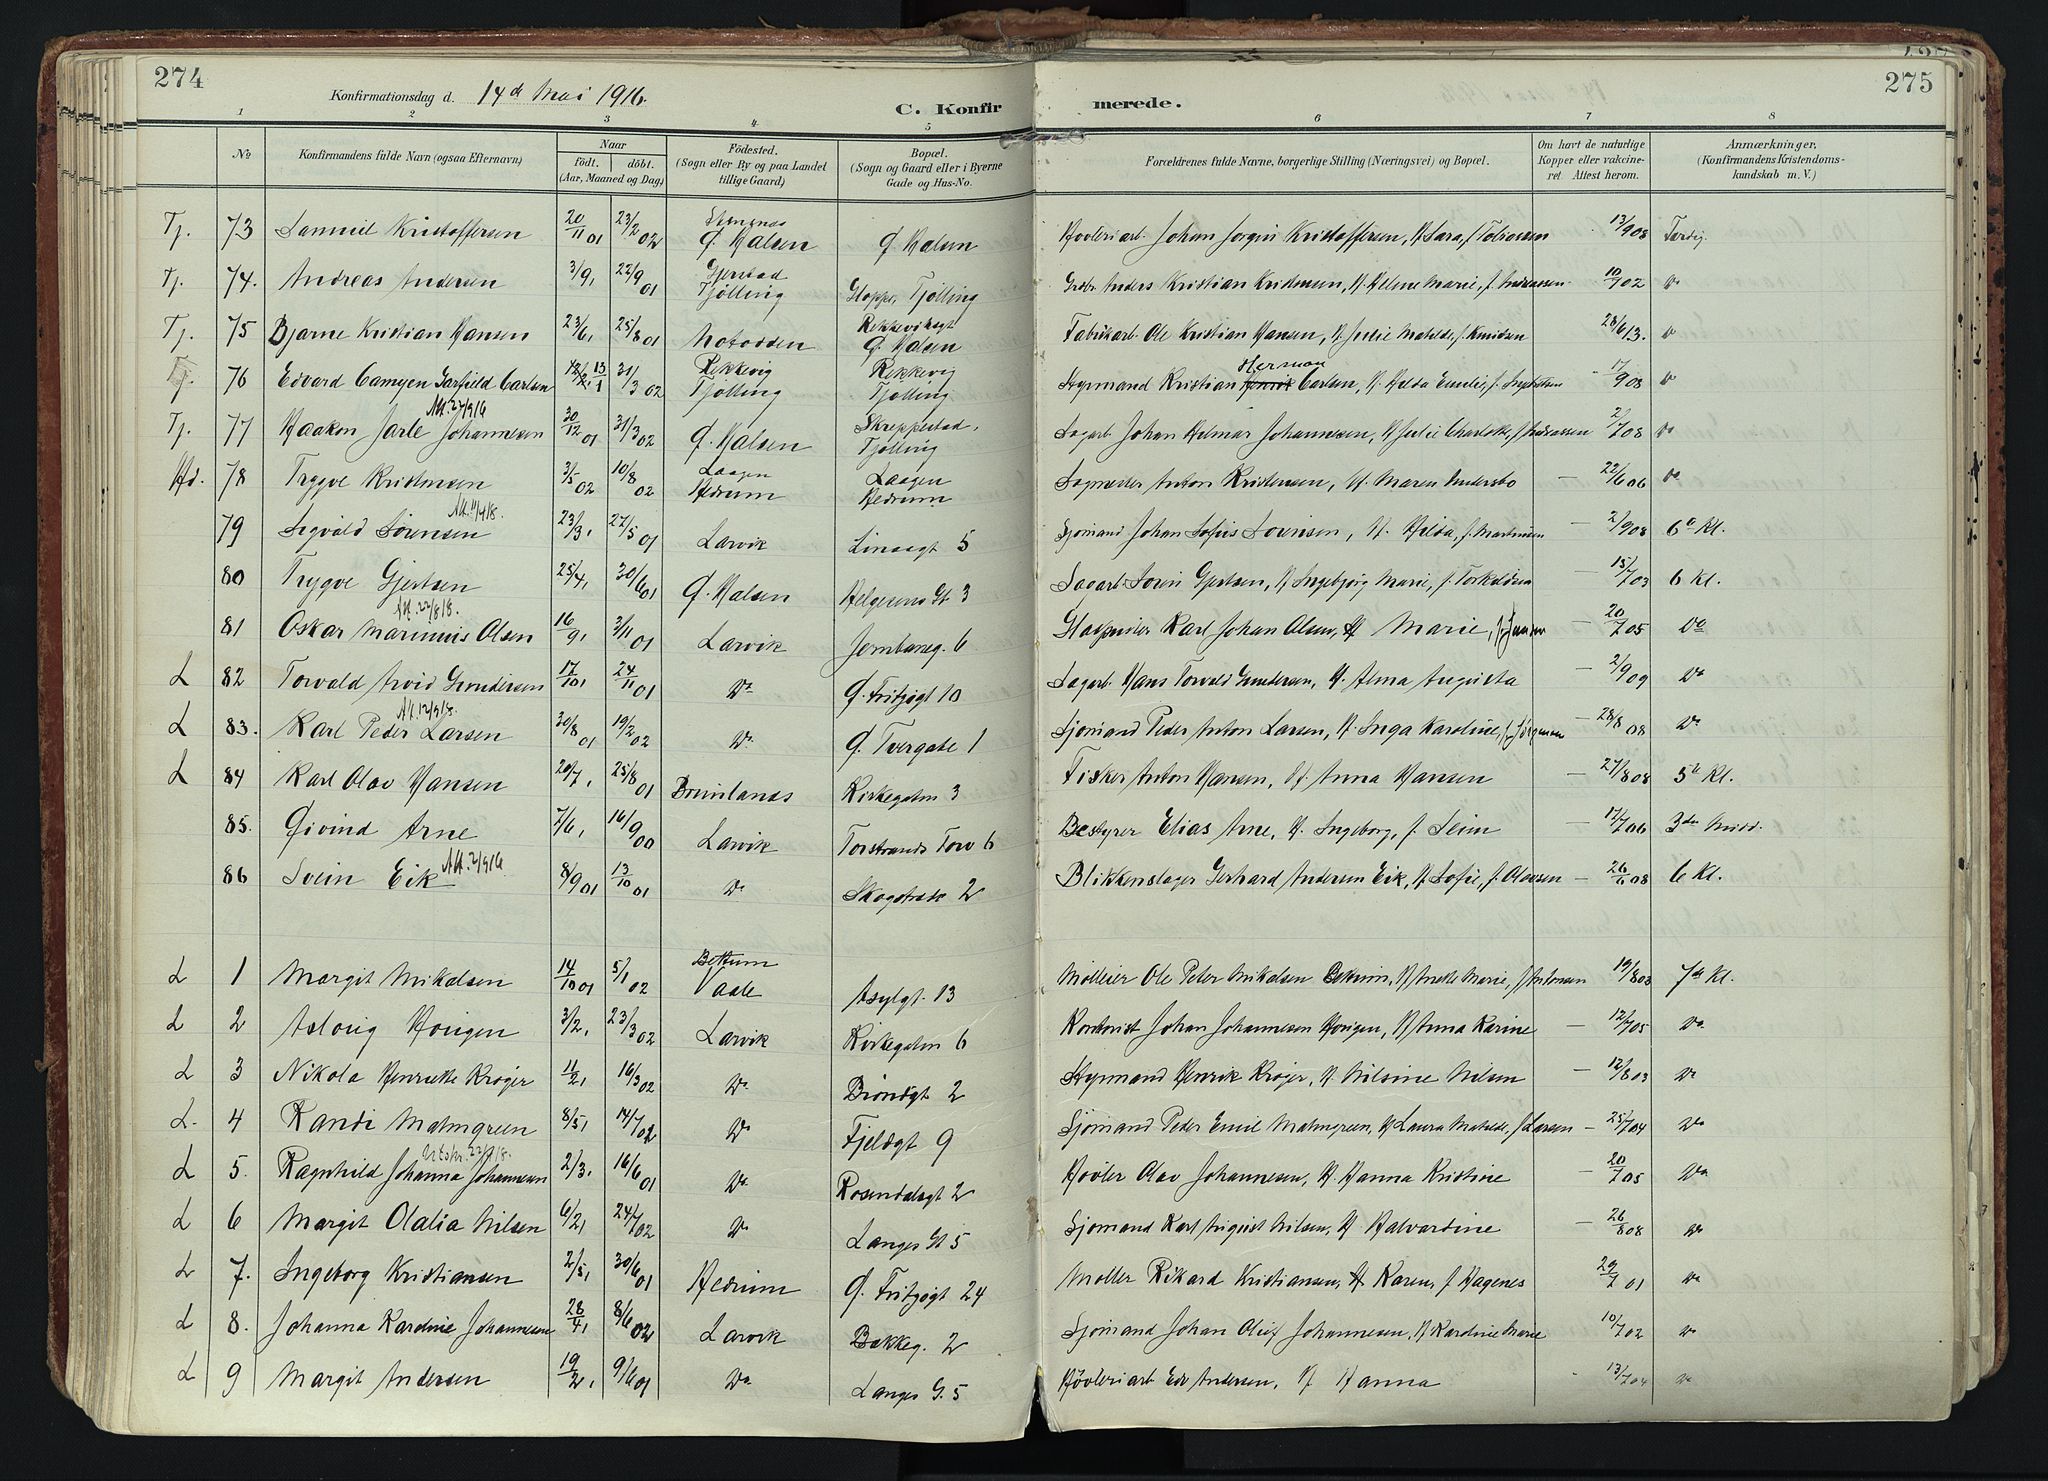 274
275
Konfirmationsdag d. 14de Mai 1916.
C. Konfirmerede.
1 2 3 4 5 6 7 8
No
Konfirmandens fulde Navn (ogsaa Efternavn)
Naar
født. døbt.
(Aar, Maaned og Dag)
Fødested.
(Sogn eller By og paa Landet tillige Gaard)
Bopæl.
(Sogn og Gaard eller i Byerne Gade og Hus-No.
Forældrenes fulde Navne, borgerlige Stilling (Næringsvei) og Bopæl.
Om havt de naturlige Kopper eller vakcineret. Attest herom.
Anmærkninger.
(Konfirmandens Kristendomskundskab m. V.)
Tj. 73 Samuel Kristoffersen 20/11 01 23/2 02 Ø. Halsen Ø. Halsen Høvleriarb. Johan Jørgen Kristoffersen, H. Sara, f. Tobiassen 13/9 08
Tj. 74. Andreas Andersen 3/9, 22/9 01 Gjerstad Tjølling Tjølling Anders Kristian Kristensen, H. Helene Marie, f. Andreassen 10/7 02 Do
Tj. 75 Bjarne Kristian Hansen 23/6, 25/8 01 Notodden Rekkeviksgt Ø. Halsen Fabrikarb. Ole Kristian Hansen, H. Julie Matilde, f. Knudsen 28/6 13. Do
Tj. 76 Edvard Camyen Garfield Carlsen 31/3 02 Rekkevig Tjølling Rekkevig Tjølling Styrmand Kristian Herman Carlsen, H. Hilda Emilie, f. Ingebretsen 17/9 08 Do
Tj. 77 Haakon Jarle Johannesen Att. 27/9 16 30/12 01 31/3 02 Ø. Halsen Skreppestad, Tjølling Sagarb. Johan Hilmar Johannesen, H. Julie Charlotte, f. Andreassen 2/7 08 Do
Hd. 78 Trygve Kristensen 3/5 02 10/8 02 Laagen Hedrum Laagen Hedrum Sagmester Anton Kristensen, H. Maren Andersbo 22/6 06 Do
79 Sigvald Sørensen Att. 11/4 18. 23/3, 27/5 01 Larvik Linaagt 5 Sjømand Johan Sofus Sørensen, H. Hilda, f. Martinsen 2/9 08 6te Kl.
80 Trygve Gjertsen 25/4, 30/6 01 Ø. Halsen Helgesens Gt 3 Sagarb. Søren Gjertsen, H. Ingebjørg Marie, f. Torkeldsen 15/7 03 6 Kl.
81 Oskar Marinius Olsen Att. 22/8 18. 16/9, 3/11 01 Larvik Jernbaneg. 6 Karl Johan Olsen, H. Marie, f. Jensen 20/7 05 Do
L 82 Torvald Arvid Gundersen 17/10, 24/11 01 Do Ø. Fritzøgt 10 Sagarb. Hans Torvald Gundersen, H. Alma Augusta 2/9 09 Do
L 83. Karl Peder Larsen Att. 12/9 18. 30/8 01 19/2 02 Do Ø. Tvergate 1 Sjømand Peder Anton Larsen, H. Inga Karoline, f. Jørgensen 28/8 08 Do
L 84 Karl Olav Hansen 20/7, 25/8 01 Brunlanes Kirkegaten 3 Fisker Anton Hansen, H. Anna Hansen 27/8 08 5te Kl.
85. Øivind Arne 7/6, 16/9 00 Larvik Torstrands Torv 6 Bestyrer Elias Arne, H. Ingeborg, f. Seim 17/7 06 3die Midd.
86 Svein Eik Att. 2/9 16 8/9 01 13/10 01 Do Skogstrede 2 Blikkenslager Gerhard Andersen Eik, H. Sofie, f. Olavsen 26/6 08 6 Kl.
L 1 Margit Mikalsen 14/10 01 5/1 02 Bettum Vaale Asylgt. 13 Møller Ole Peter Mikalsen Bettum, H. Anette Marie, f. Antonsen 19/8 03 7de Kl.
L 2 Aslaug Horgen 3/2, 23/3 02 Larvik Kirkegaten 6 Kontorist Johan Johannesen Horgen, H. Anna Karine 12/7 05 Do
L 3 Nikola Henriette Krøger 11/2, 16/3 02 Do Brøndgt 2 Styrmand Henrik Krøger, H. Nilsine Nilsen 12/8 03 Do
L. 4 Randi Malmgreen 8/5, 14/7 02 Do Fjeldgt 9 Sjømand Peder Emil Malmgreen, H. Laura Matilde, f. Larsen 25/7 04 Do
L 5. Ragnhild Johanna Johannesen Utskr. 22/4 18. 2/3, 16/6 01 Do Rosendalsgt 2 Høvler Olav Johannesen, H. Hanna Kristine 20/7 05 Do
L 6 Margit Olalia Nilsen 6/2, 24/7 02 Do Langes Gt 5 Sjømand Karl August Nilsen, H. Halvardine 26/8 08 Do
L 7. Ingeborg Kristiansen 2/5, 30/6 01 Hedrum Ø. Fritzøgt 24 Møller Rikard Kristiansen, H. Karen, f. Hagenes 29/7 01 Do
L 8. Johanna Karoline Johannesen 28/4, 8/6 02 Larvik Bakkeg. 2 Sjømand Johan Oluf Johannesen, H. Karoline Marie 10/7 02 Do
L 9 Margit Andersen 19/2, 9/6 01 Do Langes G. 5 Høvleriarb. Edv Andersen, H. Hanna 13/7 04 Do